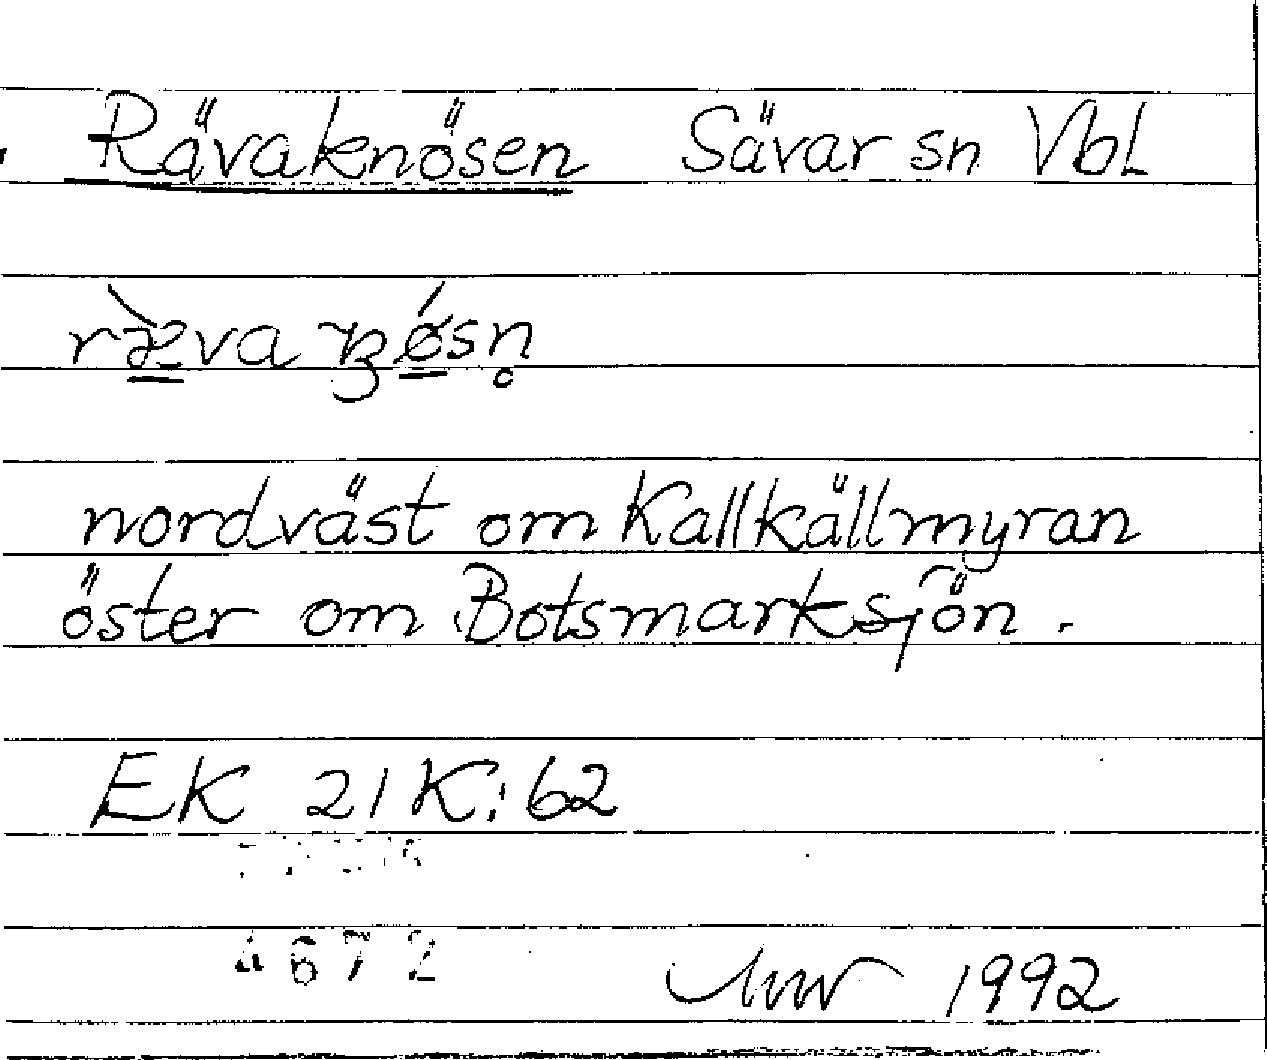 Rävaknösen Sävar sn Vbl
nordväst om Kallkällmyran
öster om Botsmarksjön.
EK 21K:62
4672
1992